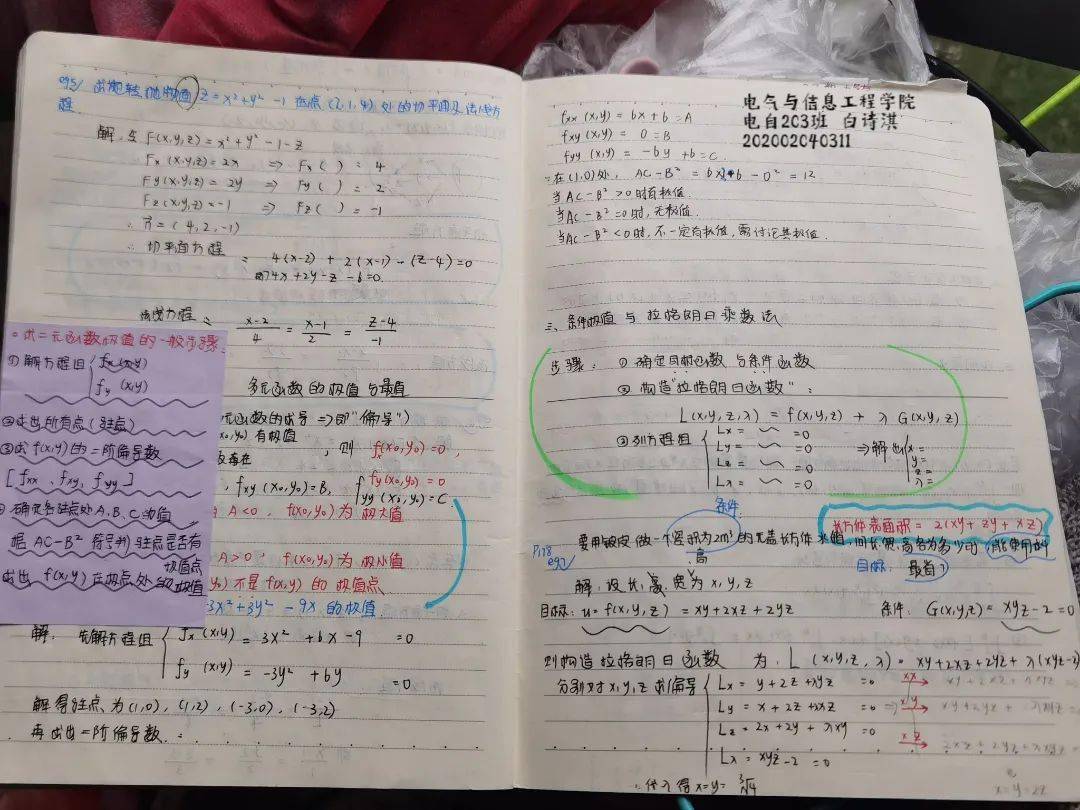 eg5/ 求旋转抛物面 z=x²+y²-1 在点(2,1,4)处的切平面及法线方
程.
解: 令 F(x,y,z)=x²+y²-1-z
Fx(x,y,z)=2x ⇒ Fx( )=4
Fy(x,y,z)=2y ⇒ Fy( )=2
Fz(x,y,z)=-1 ⇒ Fz( )=-1
∴ n⃗=(4,2,-1)
∴ 切平面方程
= 4(x-2)+2(x-1)-(z-4)=0
即4x+2y-z-6=0.
法线方程
(x-2)/4 = (x-1)/2 = (z-4)/-1
。求二元函数极值的一般步骤:
①解方程组{fx(x,y)
fy(x,y)
②求出所有点(驻点)
③求f(x,y)的二阶偏导数
[fxx、fxy、fyy]
确定各驻点处A、B、C的值
据AC-B²符号判驻点是否有
极值点
求出f(x,y)在极点处的极值
多元函数的极值与最值
元函数的求导⇒即"偏导")
(x0,y0)有极值
, 则 fx(x0,y0)=0,
存在
fy(x0,y0)=0
, fxy(x0,y0)=B, fyy(x0,y0)=C.
A<0, f(x0,y0)为极大值
A>0; f(x0,y0)为极小值
不是f(x,y)的极值点
3x²+3y²-9x的极值
解: 先解方程组{fx(x,y)=3x²+6x-9 =0
fy(x,y)=-3y²+6y =0
解得驻点为(1,0),(1,2),(-3,0),(-3,2)
再求出二阶偏导数.
fxx(x,y)=6x+6=A
fxy(x,y)=0=B
fyy(x,y)=-6y+6=C.
电气与信息工程学院
电自203班 白诗淇
202002040311
=在(1,0)处, AC-B²=6×12+6-0²=12
当AC-B²>0时有极值
当AC-B²=0时,无极值.
当AC-B²<0时,不一定有极值,需讨论其极值.
三、条件极值与拉格朗日乘数法
步骤: ①确定目标函数与条件函数
②构造"拉格朗日函数":
L(x,y,z,λ)=f(x,y,z)+λG(x,y,z)
③列方程组{Lx= =0
Ly= =0
Lz= =0
Lλ= =0
⇒解出{x=
y=
z=
λ=
条件
长方体表面积=2(xy+zy+xz)
P178
eg2/
要用铁皮做一个容积为2m³的无盖长方体水箱,问长宽高各为多少时,能使用料
高
目标: 最省?
解: 设长,高,宽为x,y,z
目标: u=f(x,y,z)=xy+2xz+2yz 条件: G(x,y,z)=xyz-2=0
则构造拉格朗日函数为: L(x,y,z,λ)=xy+2xz+2yz+λ(xyz-2)
分别对x,y,z求偏导{Lx=y+2z+λyz =0
Ly=x+2z+λxz =0
Lz=2x+2y+λxy =0
Lλ=xyz-2=0
×x
×y
×z
∴代入得x=y=∛4
x=y=2z